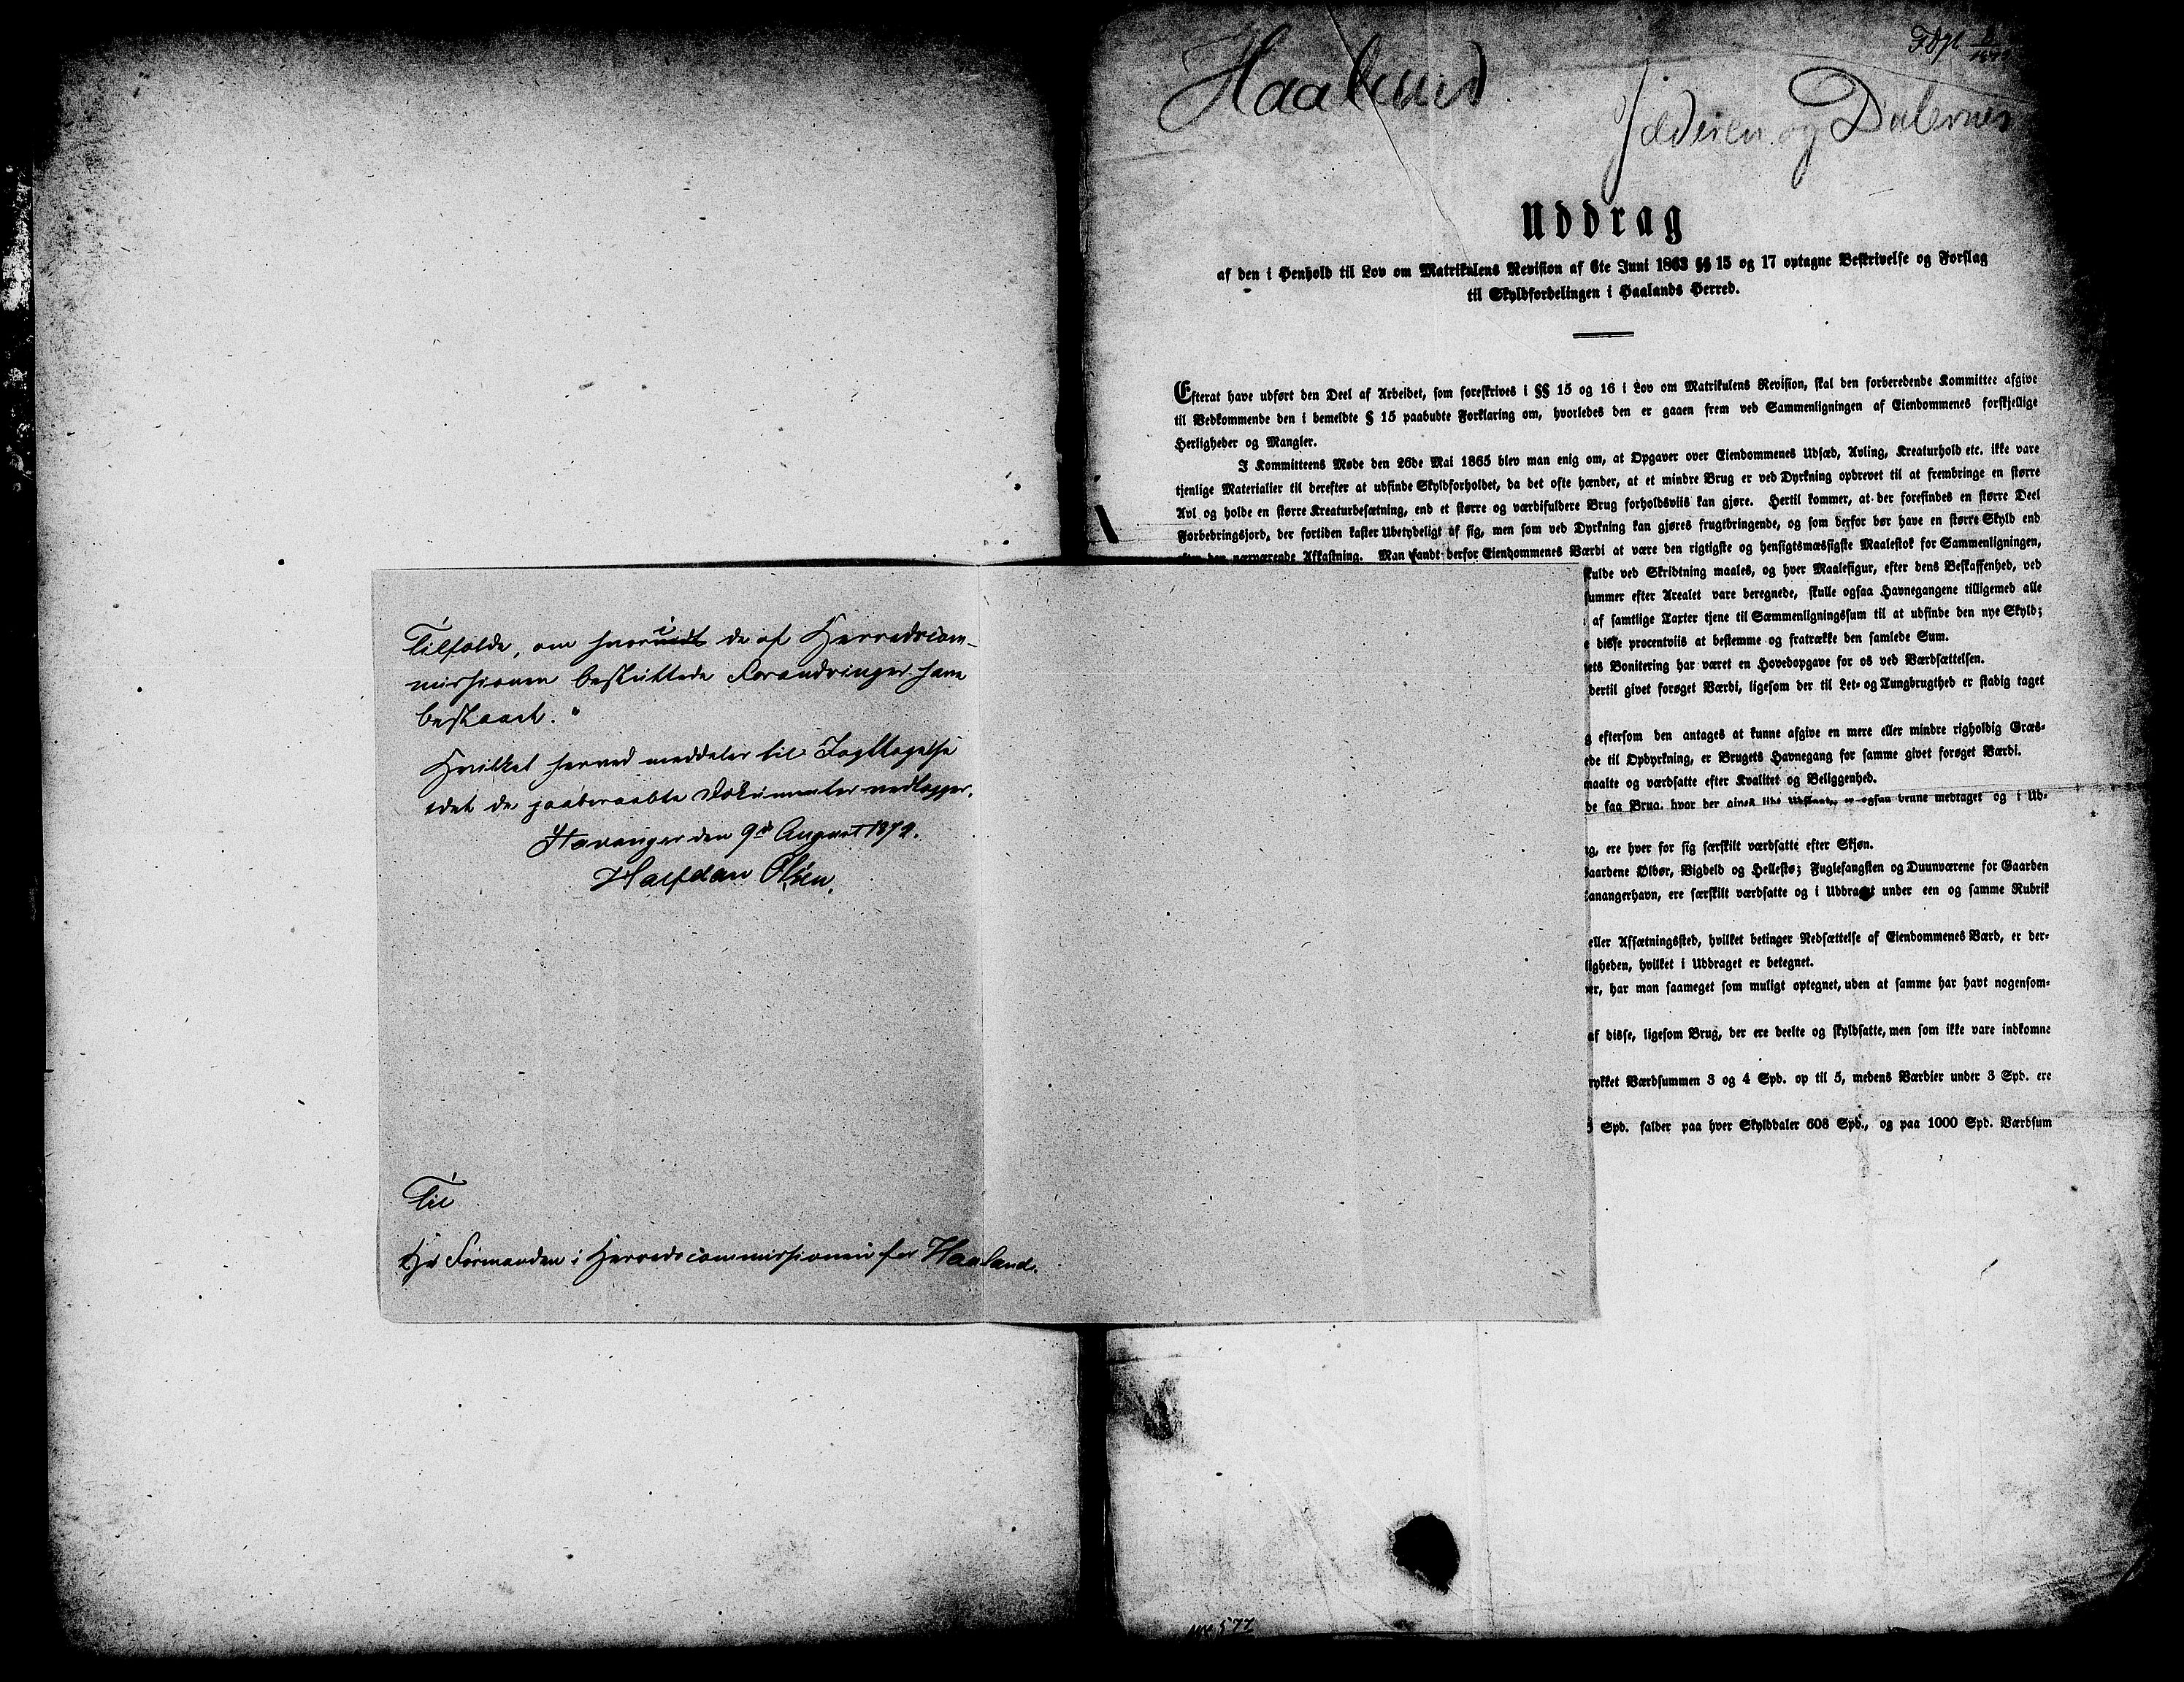 Tilfælde, om hvorvidt de af Herredscom-
missionen besluttede Forandringer have
bestaaet."
Hvilket herved meddeles til Iagttagelse
idet de paaberaabte Dokumenter vedlægges.
Stavanger den 9de August 1872.
Halfdan Olsen.
Til
Hr Formanden i Herredscommissionen for Haaland.
Haaland
Jæderen og Dalerne
Uddrag
af den i Henhold til Lov om Matrikulens Revision af 6te Juni 1863 §§ 15 og 17 optagne Beskrivelse og Forslag
til Skyldfordelingen i Haalands Herred.
Efterat have udført den Deel af Arbeidet, som foreskrives i §§ 15 og 16 i Lov om Matrikulens Revision, skal den forberedende Kommittee afgive
til Vedkommende den i bemeldte § 15 paabudte Forklaring om, hvorledes den er gaaen frem ved Sammenligningen af Eiendommenes forskjellige
Herligheder og Mangler.
I Kommitteens Møde den 26de Mai 1865 blev man enig om, at Opgaver over Eiendommenes Udsæd, Avling, Kreaturhold etc. ikke vare
tjenlige Materialier til derefter at udfinde Skyldforholdet, da det ofte hænder, at et mindre Brug er ved Dyrkning opdrevet til at frembringe en større
Avl og holde en større Kreaturbesætning, end et større og værdifuldere Brug forholdsviis kan gjøre. Hertil kommer, at der forefindes en større Deel
Forbedringsjord, der fortiden kaster Ubetydeligt af sig, men som ved Dyrkning kan gjøres frugtbringende, og som derfor bør have en større Skyld end
efter den nærværende Afkastning. Man fandt derfor Eiendommenes Værdi at være den rigtigste og hensigtsmæssigste Maalestok for Sammenligningen,
skulde ved Skridtning maales, og hver Maalefigur, efter dens Beskaffenhed, ved
summer efter Arealet vare beregnede, skulle ogsaa Havnegangene tilligemed alle
af samtlige Taxter tjene til Sammenligningssum til at udfinde den nye Skyld;
disse procentviis at bestemme og fratrække den samlede Sum.
ets Bonitering har været en Hovedopgave for os ved Værdsættelsen.
dertil givet forøget Værdi, ligesom der til Let- og Tungbrugthed er stadig taget
g eftersom den antages at kunne afgive en mere eller mindre righoldig Græs-
ede til Opdyrkning, er Brugets Havnegang for samme givet forøget Værdi.
maalte og værdsatte efter Kvalitet og Beliggenhed.
de faa Brug. hvor der ogsaa denne medtaget og i Ud-
g, ere hver for sig særskilt værdsatte efter Skjøn.
Gaardene Ølbør, Vigdeld og Hellestø; Fuglefangsten og Duunværene for Gaarden
Tanangerhavn, ere særskilt værdsatte og i Uddraget under een og samme Rubrik
eller Afsætningssted, hvilket betinger Nedsættelse af Eiendommenes Værd, er der-
ligheden, hvilket i Uddraget er betegnet.
er, har man saameget som muligt optegnet, uden at samme har havt nogensom-
af disse, ligesom Brug, der ere deelte og skyldsatte, men som ikke vare indkomne
rykket Værdsummen 3 og 4 Spd. op til 5, medens Værdier under 3 Spd. ere
Spd. falder paa hver Skylddaler 608 Spd., og paa 1000 Spd. Værdsum
577